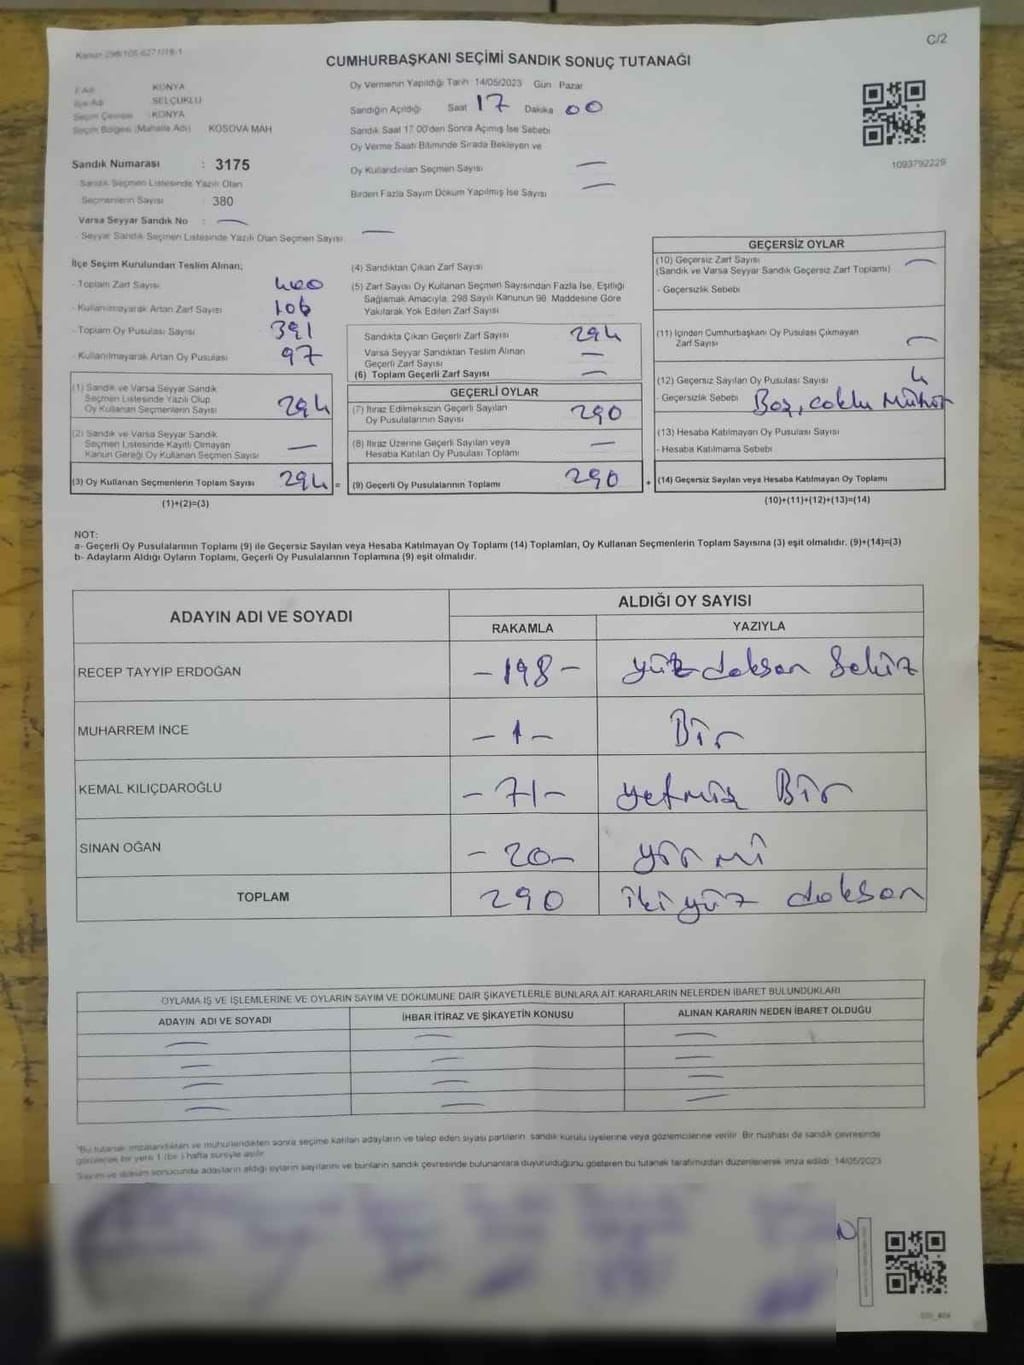 Kanun 298/105-6271/18-1
C/2
CUMHURBAŞKANI SEÇİMİ SANDIK SONUÇ TUTANAĞI
İl Adı KONYA
İlçe Adı SELÇUKLU
Seçim Çevresi : KONYA
Seçim Bölgesi (Mahalle Adı) KOSOVA MAH
Sandık Numarası : 3175
Sandık Seçmen Listesinde Yazılı Olan
Seçmenlerin Sayısı : 380
Varsa Seyyar Sandık No : —
- Seyyar Sandık Seçmen Listesinde Yazılı Olan Seçmen Sayısı —
Oy Vermenin Yapıldığı Tarih 14/05/2023 Gün Pazar
Sandığın Açıldığı Saat 17 Dakika 00
Sandık Saat 17.00'den Sonra Açımış İse Sebebi
Oy Verme Saati Bitiminde Sırada Bekleyen ve
Oy Kullandırılan Seçmen Sayısı —
Birden Fazla Sayım Döküm Yapılmış İse Sayısı —
1093792229
İlçe Seçim Kurulundan Teslim Alınan;
- Toplam Zarf Sayısı 400
- Kullanılmayarak Artan Zarf Sayısı 106
- Toplam Oy Pusulası Sayısı 391
- Kullanılmayarak Artan Oy Pusulası 97
(1) Sandık ve Varsa Seyyar Sandık
Seçmen Listesinde Yazılı Olup
Oy Kullanan Seçmenlerin Sayısı 294
(2) Sandık ve Varsa Seyyar Sandık
Seçmen Listesinde Kayıtlı Olmayan
Kanun Gereği Oy Kullanan Seçmen Sayısı —
(3) Oy Kullanan Seçmenlerin Toplam Sayısı 294 =
(1)+(2)=(3)
(4) Sandıktan Çıkan Zarf Sayısı
(5) Zarf Sayısı Oy Kullanan Seçmen Sayısından Fazla İse, Eşitliği
Sağlamak Amacıyla, 298 Sayılı Kanunun 98. Maddesine Göre
Yakılarak Yok Edilen Zarf Sayısı
Sandıkta Çıkan Geçerli Zarf Sayısı 294
Varsa Seyyar Sandıktan Teslim Alınan
Geçerli Zarf Sayısı —
(6) Toplam Geçerli Zarf Sayısı —
GEÇERLİ OYLAR
(7) İtiraz Edilmeksizin Geçerli Sayılan
Oy Pusulalarının Sayısı 290
(8) İtiraz Üzerine Geçerli Sayılan veya
Hesaba Katılan Oy Pusulası Toplamı —
(9) Geçerli Oy Pusulalarının Toplamı 290 +
GEÇERSİZ OYLAR
(10) Geçersiz Zarf Sayısı —
(Sandık ve Varsa Seyyar Sandık Geçersiz Zarf Toplamı)
- Geçersizlik Sebebi
(11) İçinden Cumhurbaşkanı Oy Pusulası Çıkmayan
Zarf Sayısı —
(12) Geçersiz Sayılan Oy Pusulası Sayısı 4
- Geçersizlik Sebebi Boş, çoklu Mühür
(13) Hesaba Katılmayan Oy Pusulası Sayısı
- Hesaba Katılmama Sebebi
(14) Geçersiz Sayılan veya Hesaba Katılmayan Oy Toplamı
(10)+(11)+(12)+(13)=(14)
NOT:
a- Geçerli Oy Pusulalarının Toplamı (9) ile Geçersiz Sayılan veya Hesaba Katılmayan Oy Toplamı (14) Toplamları, Oy Kullanan Seçmenlerin Toplam Sayısına (3) eşit olmalıdır. (9)+(14)=(3)
b- Adayların Aldığı Oyların Toplamı, Geçerli Oy Pusulalarının Toplamına (9) eşit olmalıdır.
ADAYIN ADI VE SOYADI
ALDIĞI OY SAYISI
RAKAMLA YAZIYLA
RECEP TAYYIP ERDOĞAN -198- yüz doksan Sekiz
MUHARREM İNCE -1- Bir
KEMAL KILIÇDAROĞLU -71- yetmiş Bir
SİNAN OĞAN -20- yirmi
TOPLAM 290 ikiyüz doksan
OYLAMA İŞ VE İŞLEMLERİNE VE OYLARIN SAYIM VE DÖKÜMÜNE DAİR ŞİKAYETLERLE BUNLARA AİT KARARLARIN NELERDEN İBARET BULUNDUKLARI
ADAYIN ADI VE SOYADI İHBAR İTİRAZ VE ŞİKAYETİN KONUSU ALINAN KARARIN NEDEN İBARET OLDUĞU
— — —
— — —
— — —
— — —
*Bu tutanak imzalandıktan ve mühürlendikten sonra seçime katılan adayların ve talep eden siyasi partilerin sandık kurulu üyelerine veya gözlemcilerine verilir. Bir nüshası da sandık çevresinde
görülecek bir yere 1 (bir) hafta süreyle asılır.
Sayım ve döküm sonucunda adayların aldığı oyların sayılarını ve bunların sandık çevresinde bulunanlara duyurulduğunu gösteren bu tutanak tarafımızdan düzenlenerek imza edildi. 14/05/2023